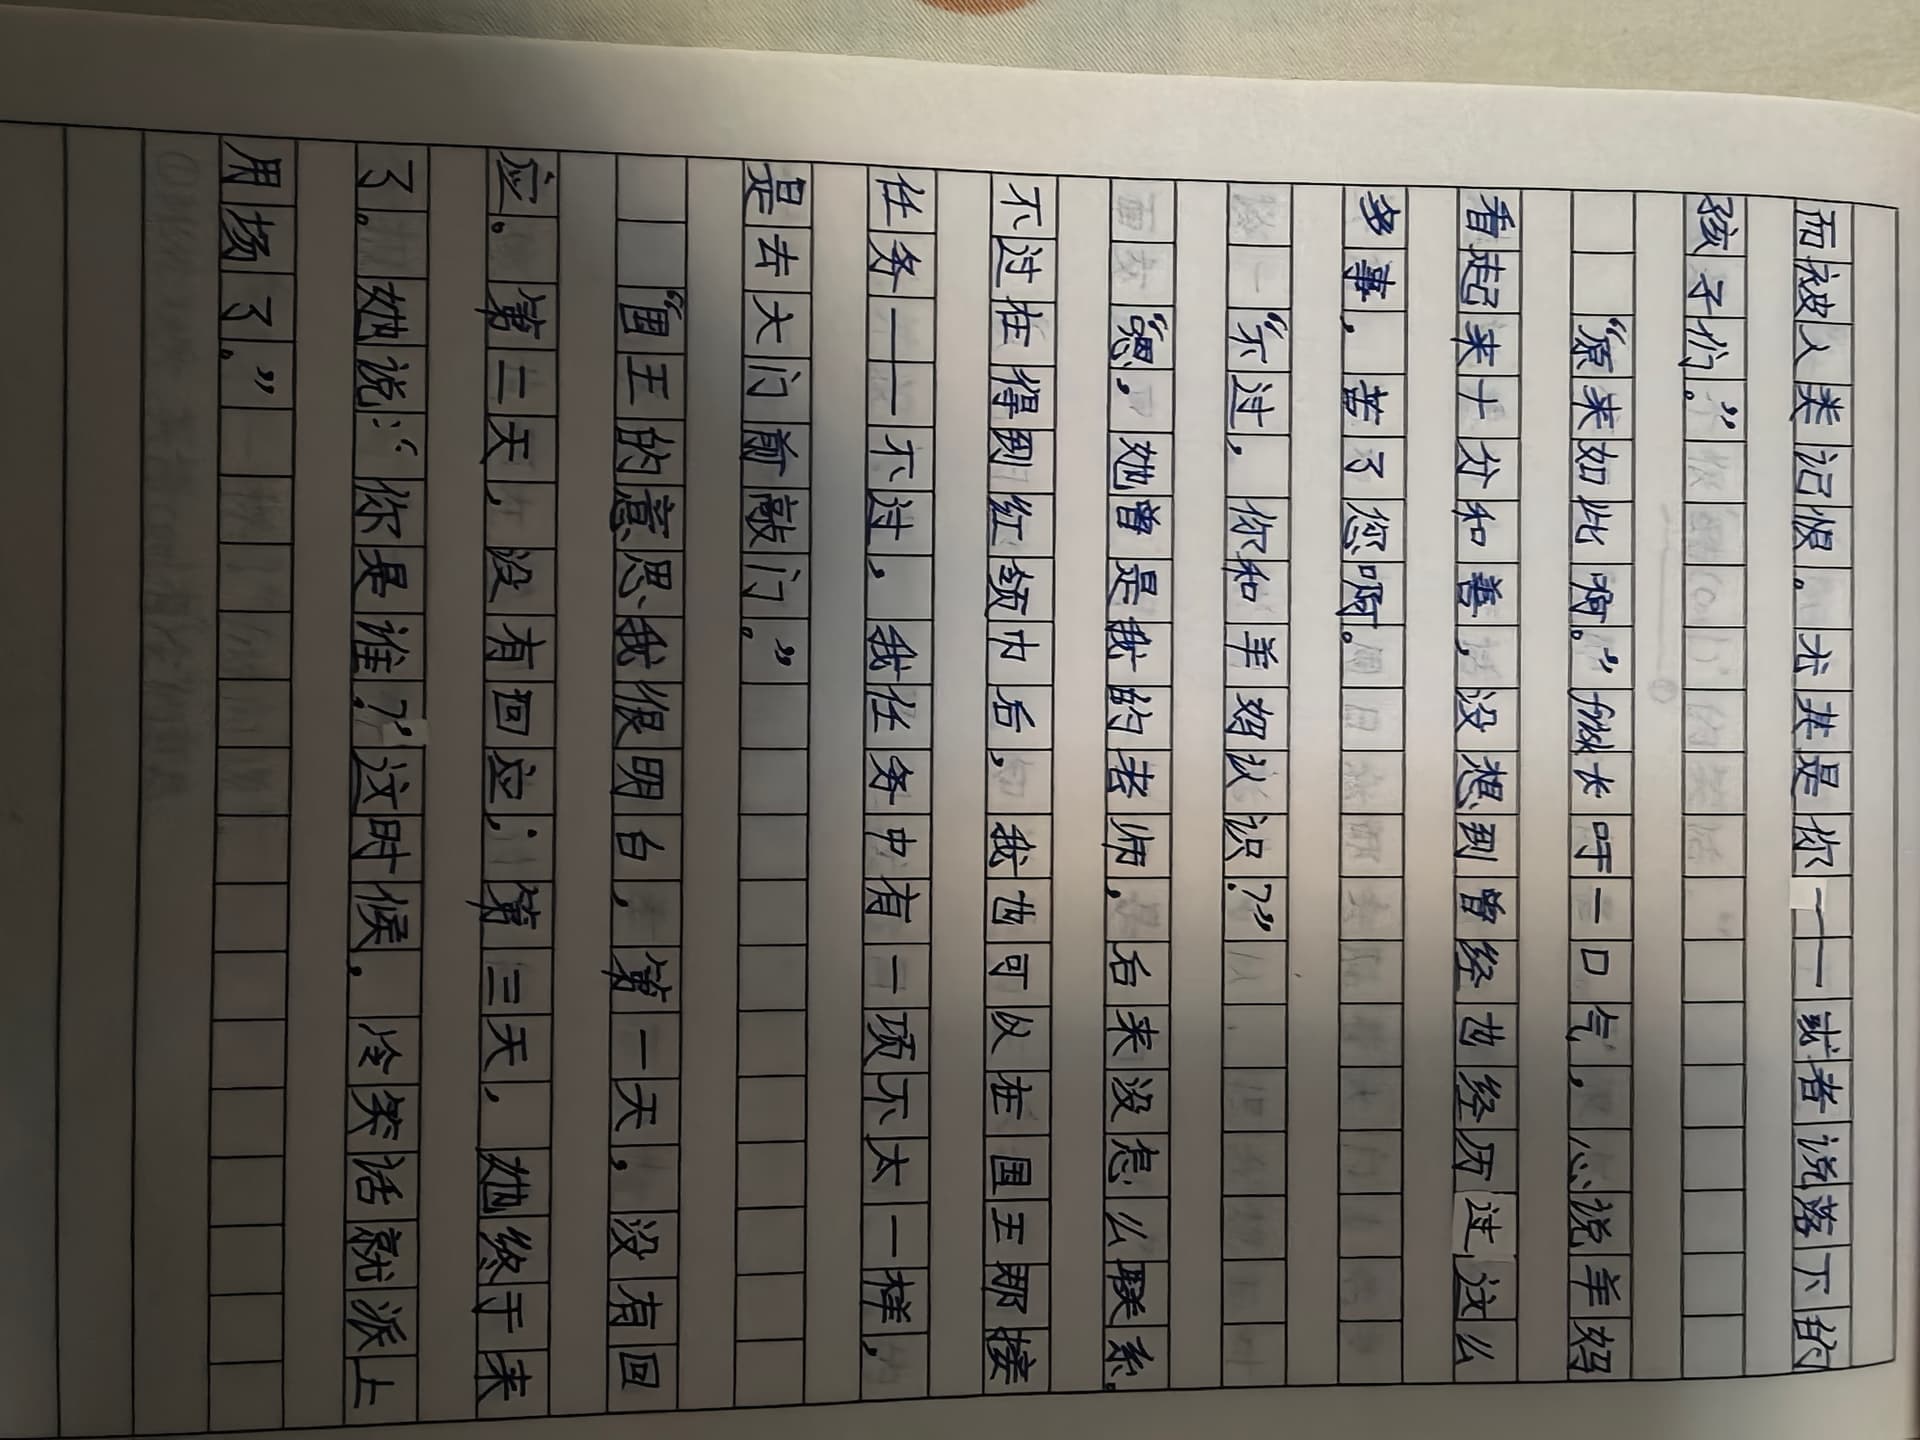 而被人类记恨。尤其是你——或者说落下的
孩子们。”
“原来如此啊。”微长吁一口气，“怎说羊妈
看起来十分和善，没想到曾经也经历过这么
多事，苦了您啊。
“不过，你和羊妈认识？”
“嗯，她曾是我的老师，后来没怎么联系。
不过在得到红领巾后，我也可以在国王那接
任务——不过，我任务中有一项不太一样，
是去大门前敲门。”
“国王的意思我很明白，第一天，没有回
应。第二天，没有回应，第三天，她终于来
了。她说：“你是谁？”这时候，冷笑话就派上
用场了。”